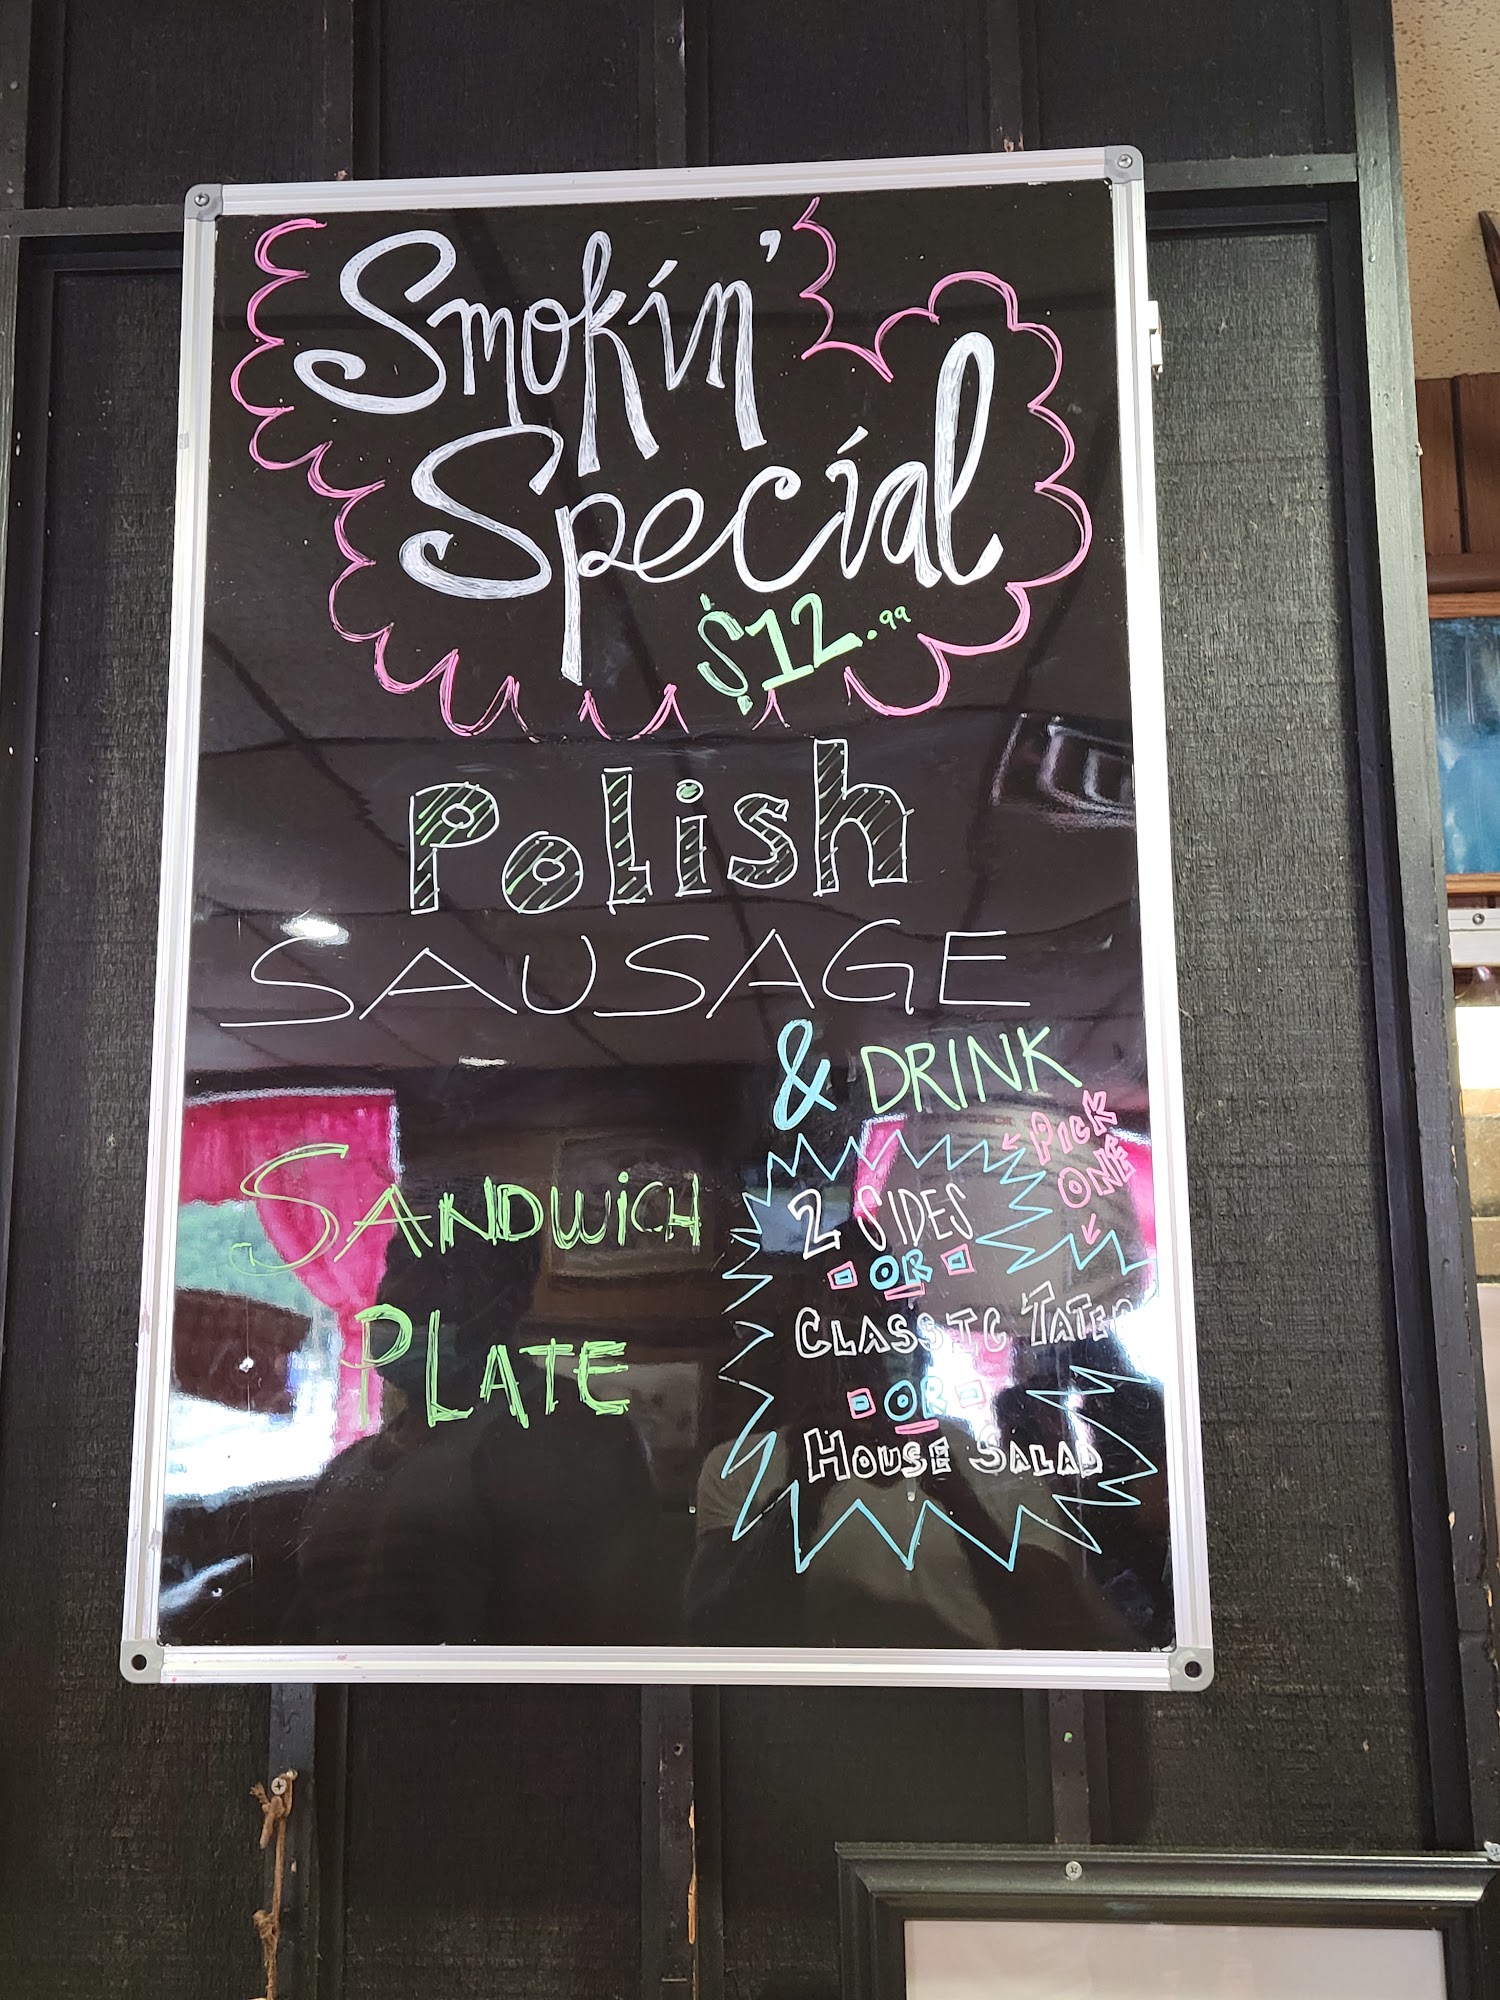 Smokin'
Special
$12.99
Polish
SAUSAGE
& DRINK
PICK
ONE
SANDWICH
PLATE
2 SIDES
OR
CLASSIC TATER
OR
HOUSE SALAD